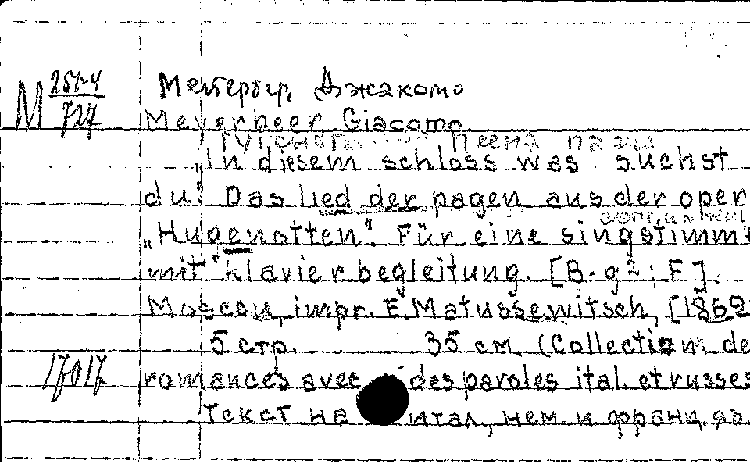 М 251-4
727
Мейербер, Джакомо
Meyerbeer Giacomo
Гугеноты Песня пажа
„In diesem schloss was suchst
du? Das lied der pagen aus der oper
„Hugenotten". Für eine singstimme
mit klavierbegleitung. [B-g²; F].
Moscou, impr. E. Matussewitsch, [1862
5 стр. 35 см. (Collection de
17017
romances avec des paroles ital. et russes
Текст на итал., нем и франц. яз